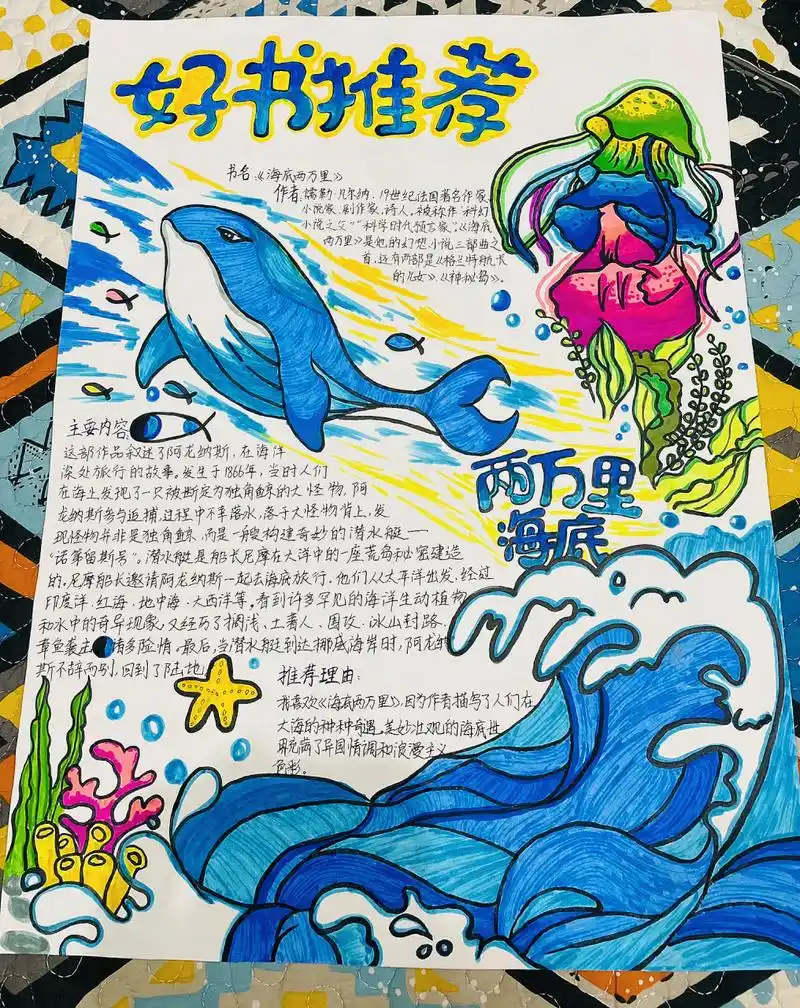 好书推荐
书名:《海底两万里》
作者:儒勒·凡尔纳,19世纪法国著名作家,
小说家,剧作家,诗人。被称作"科幻
小说之父""科学时代预言家"。《海底
两万里》是他的幻想小说三部曲之
首,还有两部是《格兰特船长
的儿女》、《神秘岛》。
主要内容:
这部作品叙述了阿龙纳斯,在海洋
深处旅行的故事。发生于1866年,当时人们
在海上发现了一只被断定为独角鲸的大怪物,阿
龙纳斯参与追捕,过程中不幸落水,落于大怪物背上,发
现怪物并非是独角鲸,而是一艘构建奇妙的潜水艇——
"诺第留斯号"。潜水艇是船长尼摩在大洋中的一座荒岛秘密建造
的,尼摩船长邀请阿龙纳斯一起去海底旅行。他们从太平洋出发,经过
印度洋、红海、地中海、大西洋等。看到许多罕见的海洋生动植物
和水中的奇异现象,又经历了搁浅、土著人、围攻、冰山封路、
章鱼袭击诸多险情。最后,当潜水艇到达挪底海岸时,阿龙纳
斯不辞而别,回到了陆地
两万里
海底
推荐理由:
我喜欢《海底两万里》,因为作者描写了人们在
大海的种种奇遇。美妙壮观的海底世
界充满了异国情调和浪漫主义
色彩。